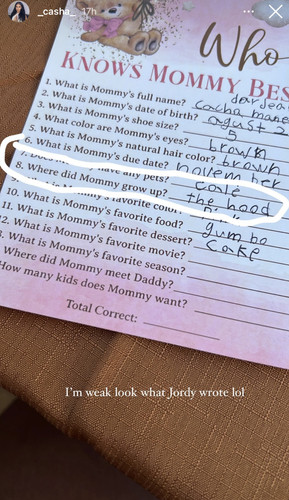 _casha_ 17h
Who
KNOWS MOMMY BES
1. What is Mommy's full name?
2. What is Mommy's date of birth? cacha mane
3. What is Mommy's shoe size? august 2
4. What color are Mommy's eyes? 5
5. What is Mommy's natural hair color? brown
6. What is Mommy's due date? brown
7. Does have any pets? november
8. Where did Mommy grow up? cole
is Mommy's favorite color? the hood
10. What is Mommy's favorite food?
11. What is Mommy's favorite dessert? gumbo
2. What is Mommy's favorite movie? cake
What is Mommy's favorite season?
Where did Mommy meet Daddy?
How many kids does Mommy want?
Total Correct:
I'm weak look what Jordy wrote lol